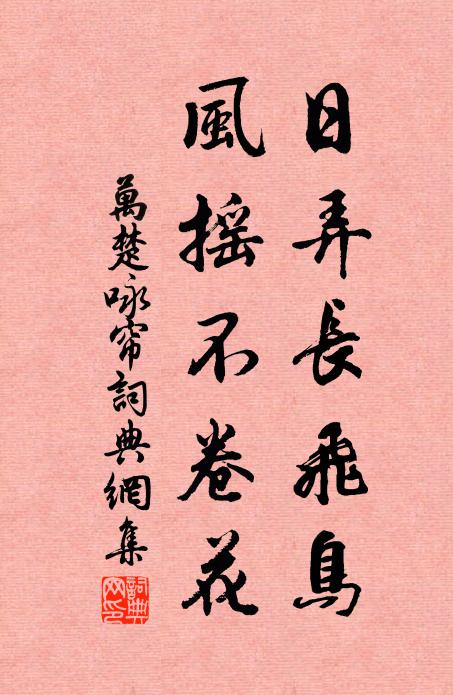 日弄長飛鳥
風摇不卷花
萬楚咏帘詞典網集
詞典網印